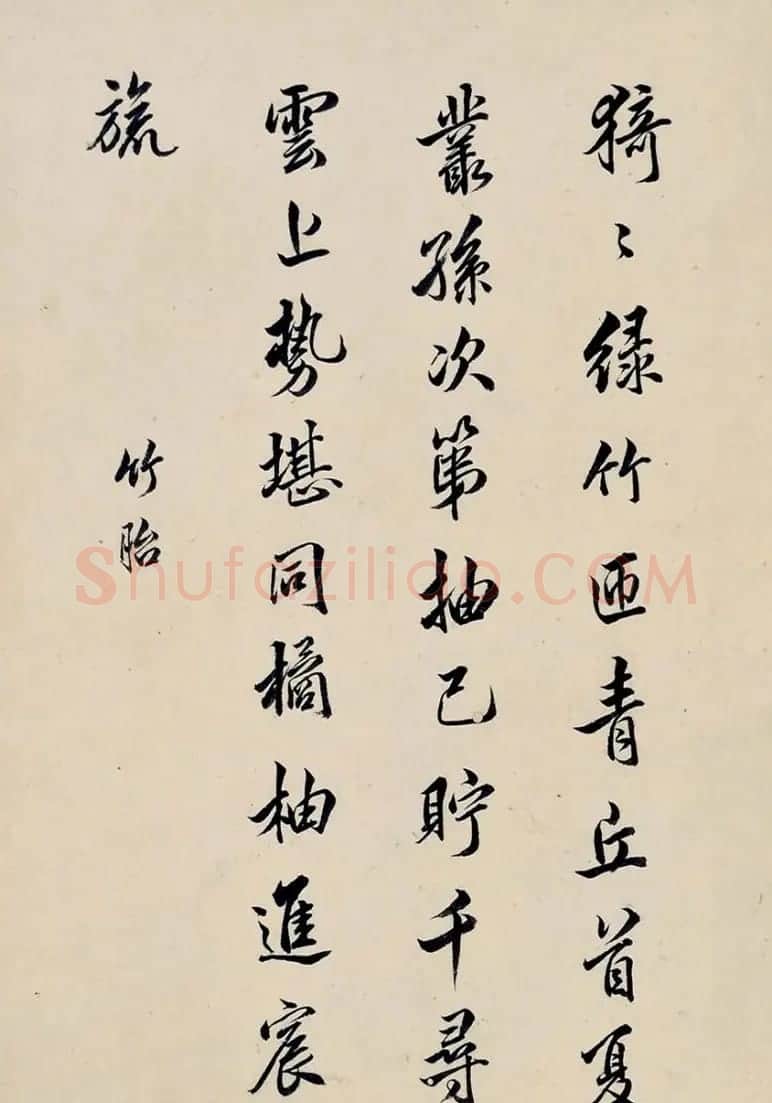 猗〻緑竹匝青丘首夏
叢孫次第抽已貯千尋
雲上勢堪同橘柚進宸
旒
竹胎
Shufaziliao.COM